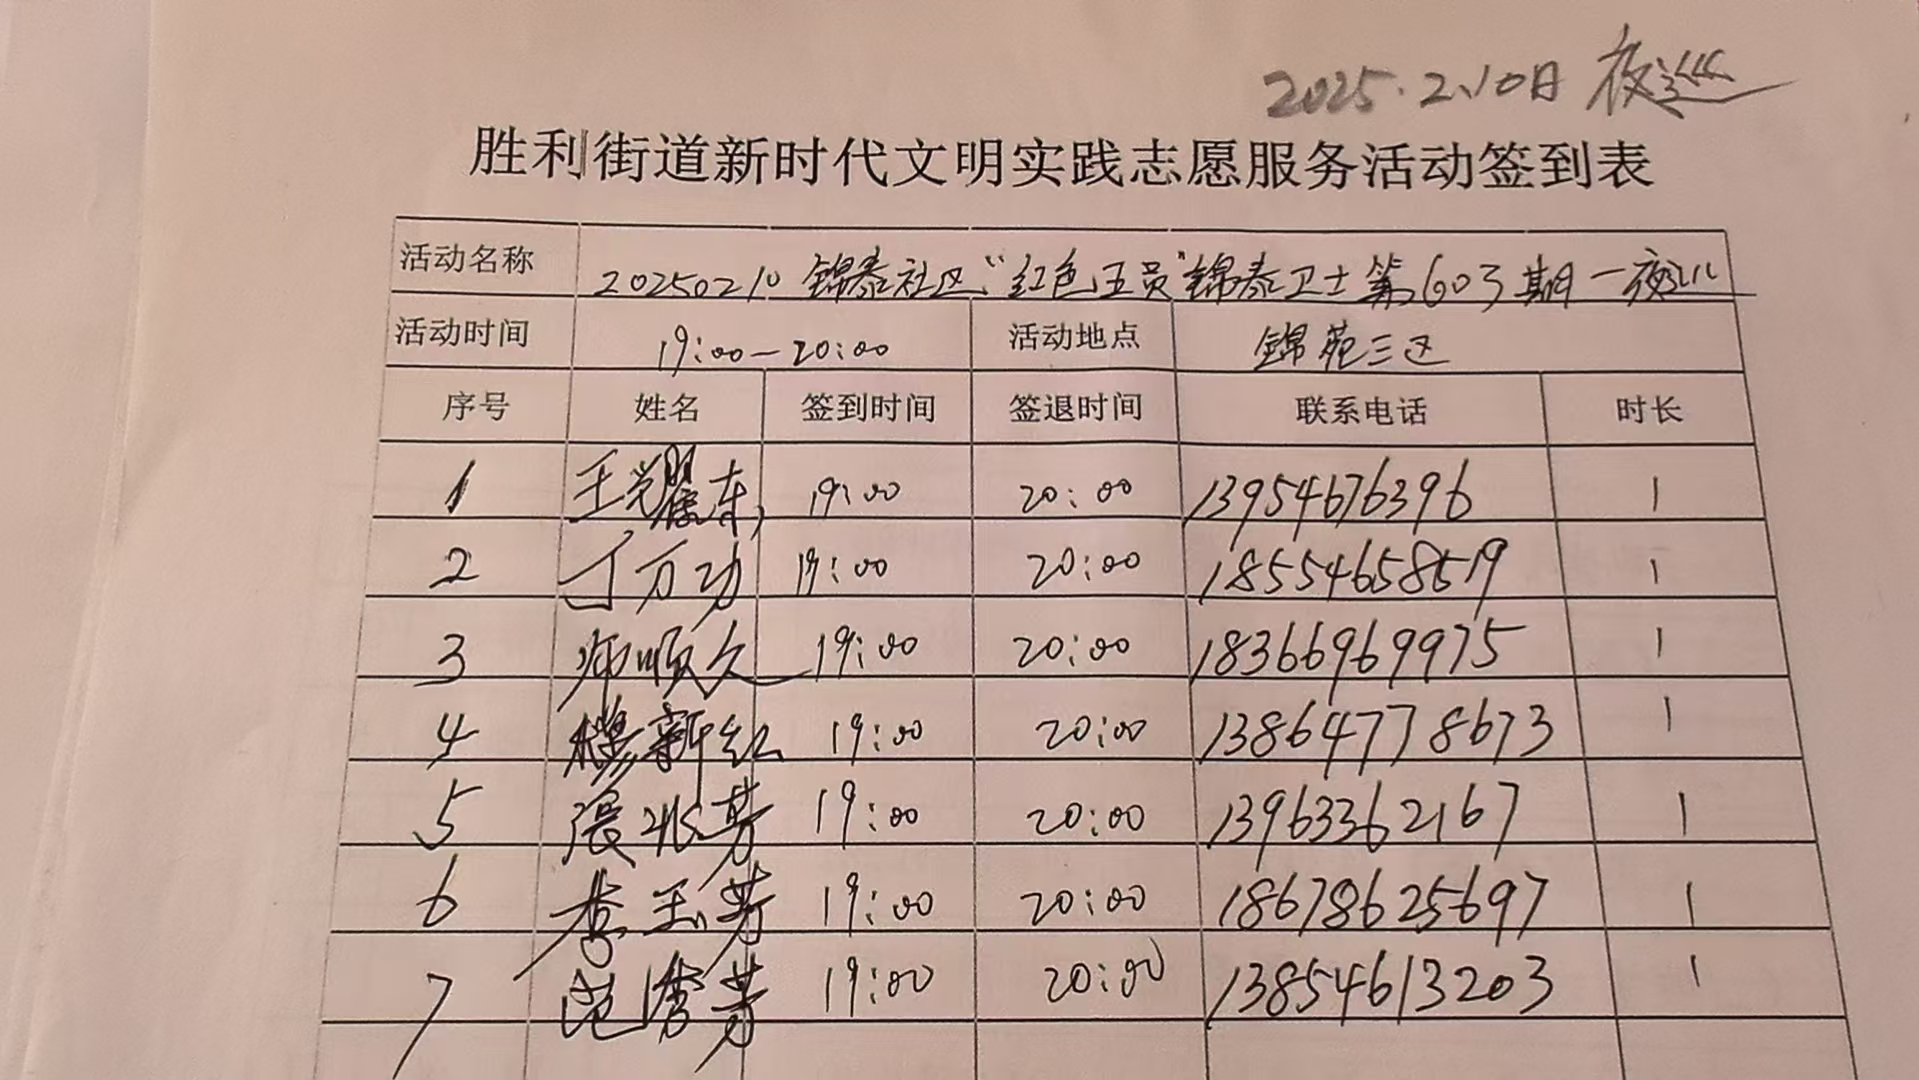 2025.2.10日 夜巡
胜利街道新时代文明实践志愿服务活动签到表
活动名称 20250210 锦泰社区“红色五员”锦泰卫士第603期一夜巡
活动时间 19:00—20:00 活动地点 锦苑三区
序号 姓名 签到时间 签退时间 联系电话 时长
1 王耀东 19:00 20:00 13954676396 1
2 丁万功 19:00 20:00 18554658519 1
3 师顺久 19:00 20:00 18366969975 1
4 穆新红 19:00 20:00 13864778673 1
5 张兆芳 19:00 20:00 13963362167 1
6 李玉芳 19:00 20:00 18678625697 1
7 范秀芳 19:00 20:00 13854613203 1